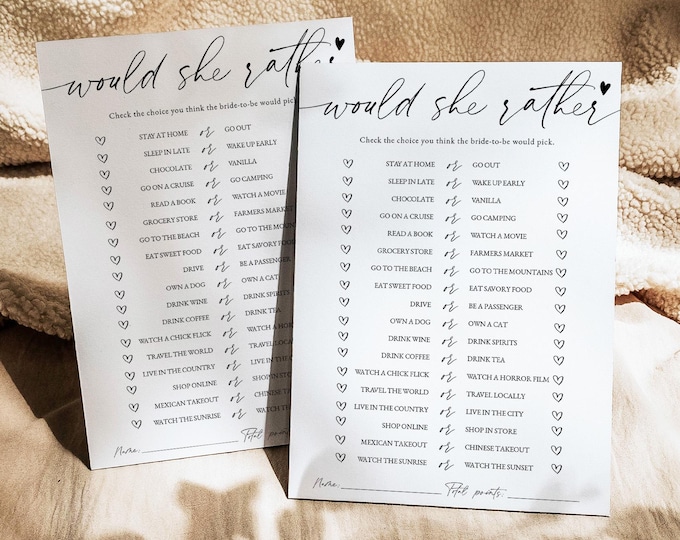 would she rather
Check the choice you think the bride-to-be would pick.
STAY AT HOME or GO OUT
SLEEP IN LATE or WAKE UP EARLY
CHOCOLATE or VANILLA
GO ON A CRUISE or GO CAMPING
READ A BOOK or WATCH A MOVIE
GROCERY STORE or FARMERS MARKET
GO TO THE BEACH or GO TO THE MOUN
EAT SWEET FOOD or EAT SAVORY FOOD
DRIVE or BE A PASSENGER
OWN A DOG or OWN A CAT
DRINK WINE or DRINK SPIRITS
DRINK COFFEE or DRINK TEA
WATCH A CHICK FLICK or WATCH A HOR
TRAVEL THE WORLD or TRAVEL LOCAL
LIVE IN THE COUNTRY or LIVE IN THE C
SHOP ONLINE or SHOP IN STO
MEXICAN TAKEOUT or CHINESE T
WATCH THE SUNRISE or WATCH THE
Name: Total points:
would she rather
Check the choice you think the bride-to-be would pick.
STAY AT HOME or GO OUT
SLEEP IN LATE or WAKE UP EARLY
CHOCOLATE or VANILLA
GO ON A CRUISE or GO CAMPING
READ A BOOK or WATCH A MOVIE
GROCERY STORE or FARMERS MARKET
GO TO THE BEACH or GO TO THE MOUNTAINS
EAT SWEET FOOD or EAT SAVORY FOOD
DRIVE or BE A PASSENGER
OWN A DOG or OWN A CAT
DRINK WINE or DRINK SPIRITS
DRINK COFFEE or DRINK TEA
WATCH A CHICK FLICK or WATCH A HORROR FILM
TRAVEL THE WORLD or TRAVEL LOCALLY
LIVE IN THE COUNTRY or LIVE IN THE CITY
SHOP ONLINE or SHOP IN STORE
MEXICAN TAKEOUT or CHINESE TAKEOUT
WATCH THE SUNRISE or WATCH THE SUNSET
Name: Total points: